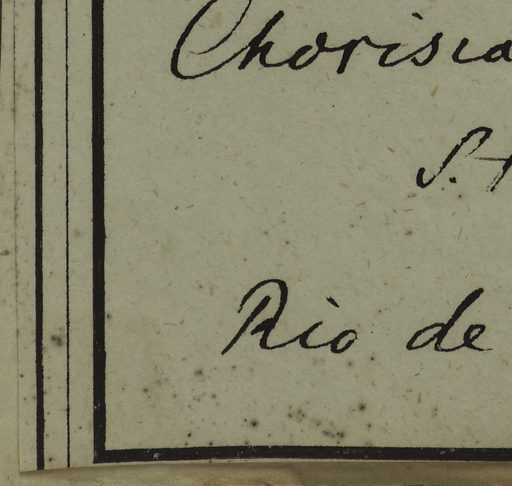 Chorisia
S. 
Rio de